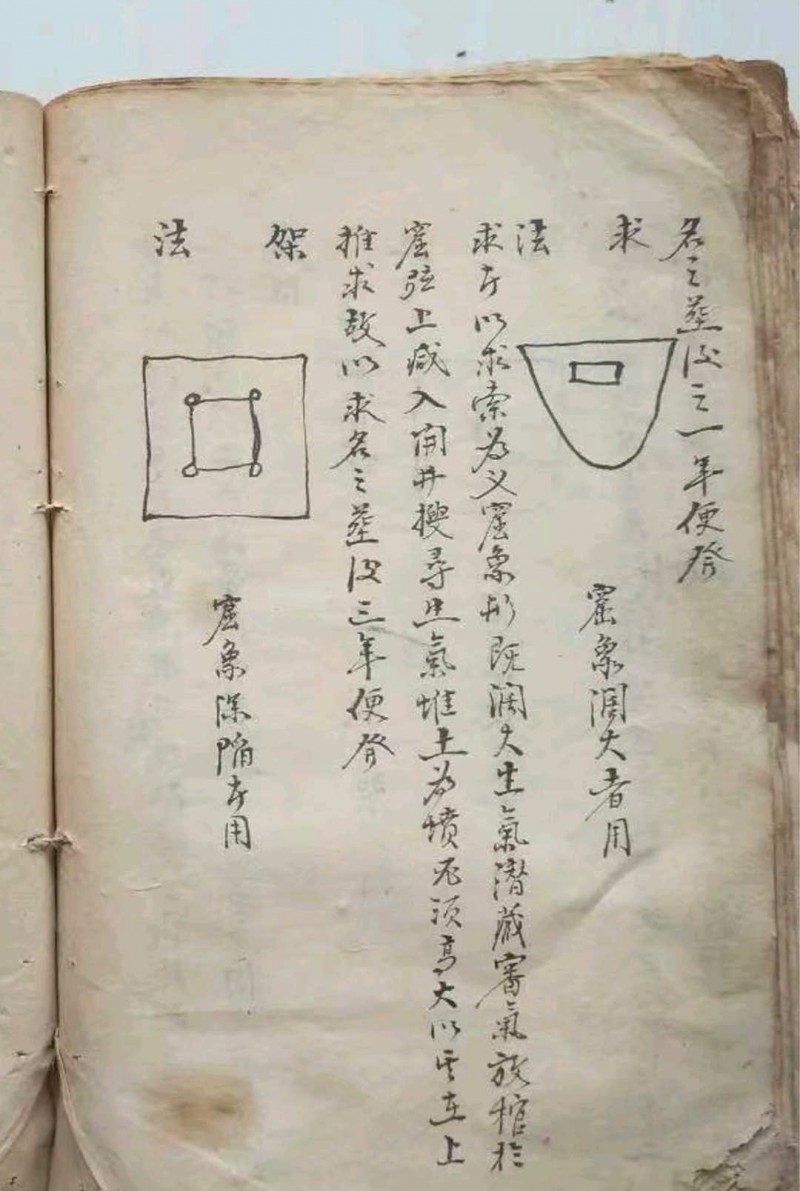 名之葬後之一年便發
求法
窟象濶大者用
求者以求索為义窟象形既濶大生氣潜藏審氣放棺於
窟弦上咸入開井搜尋生氣堆土為墳不須高大以其在上
推求故以求名之葬後三年便發
架法
窟象深陷者用